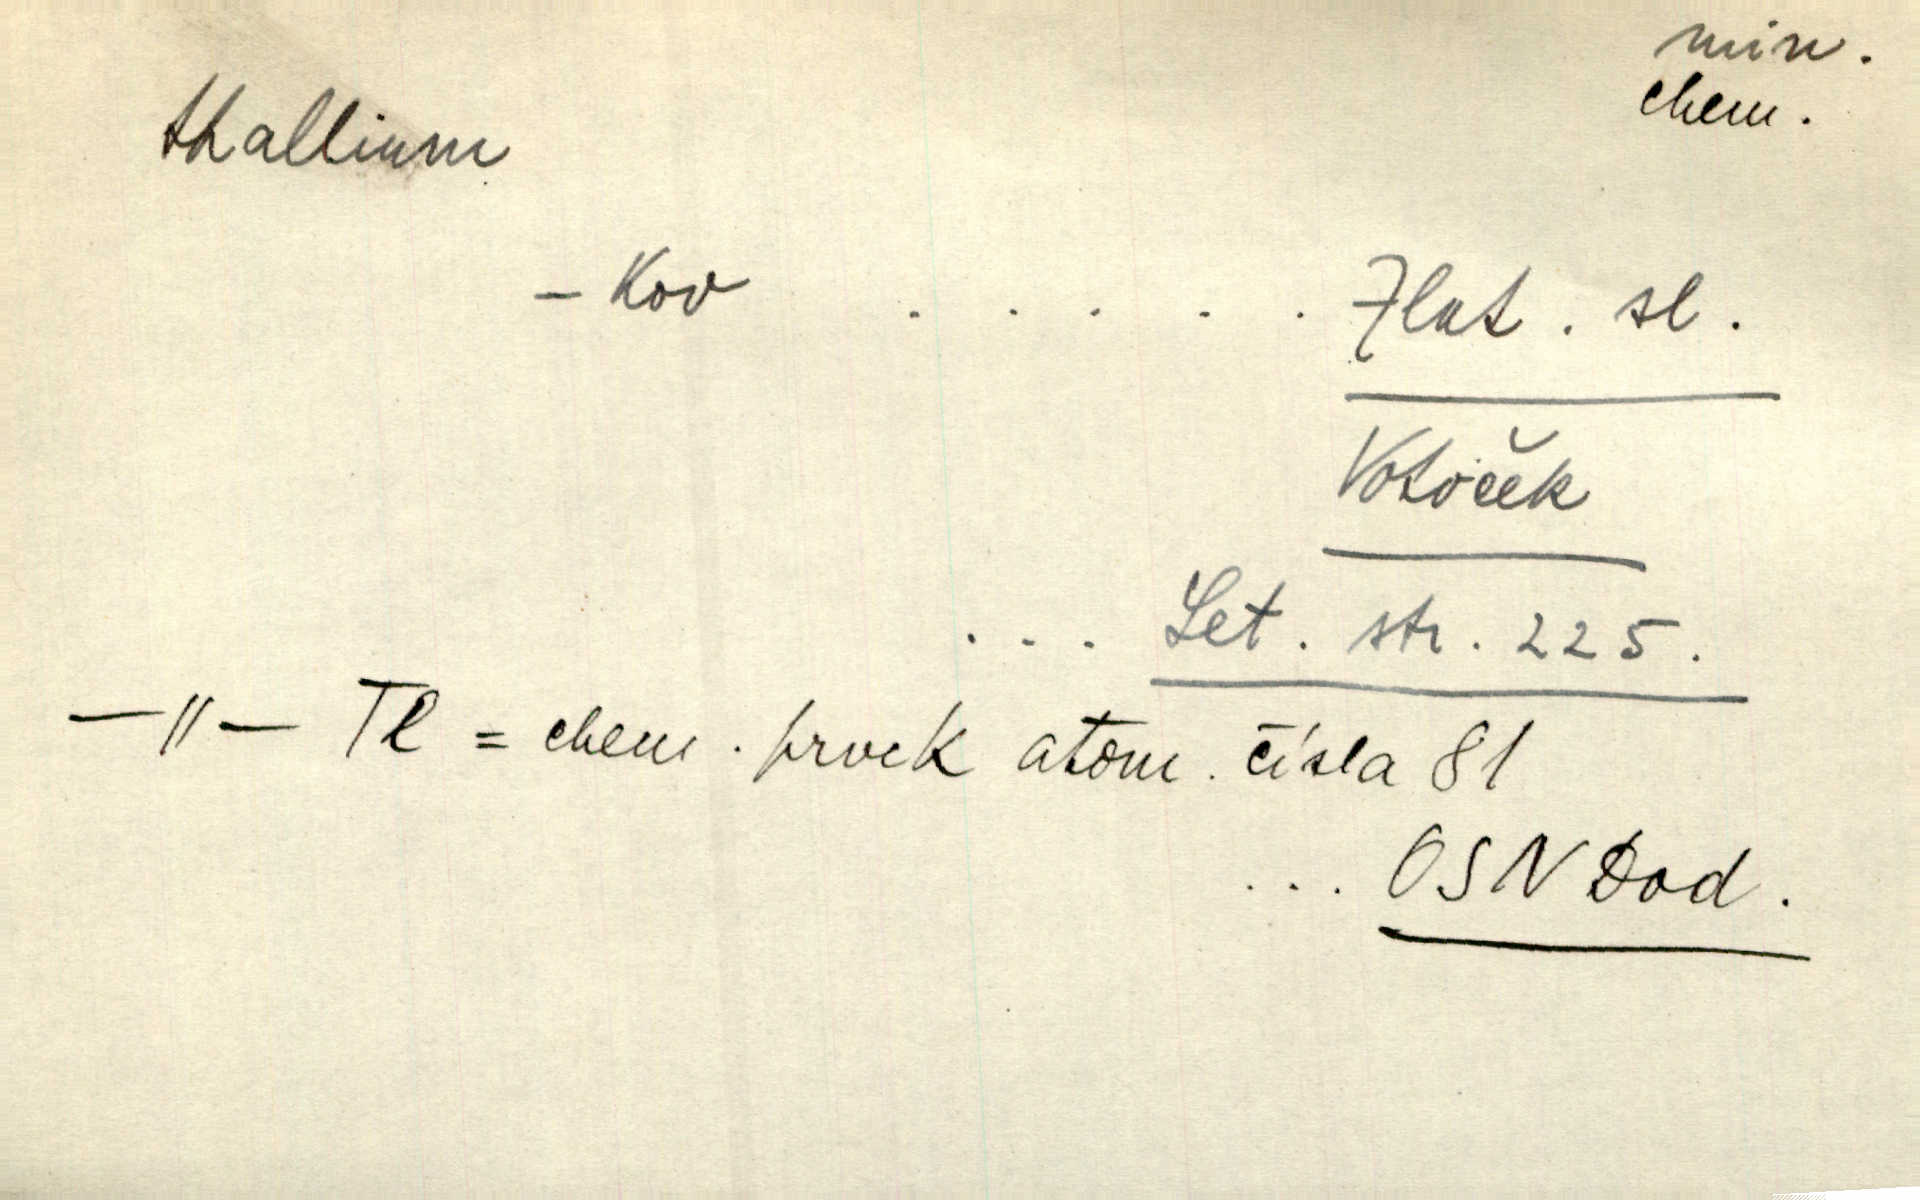 min.
chem.
thallium
- Kov . . . . . Flat. sl.
Votoček
. . . Let. str. 225.
—〃— Tl = chem. prvek atom. čísla 81
... OSN Dod.